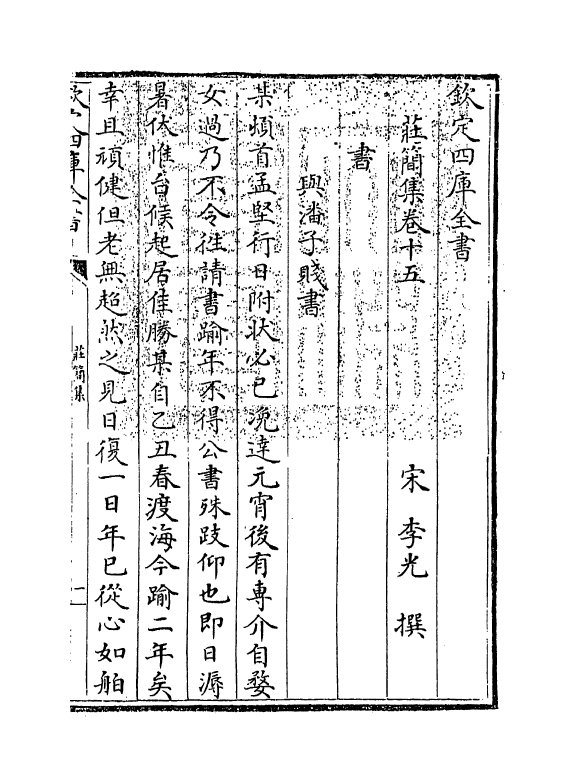 欽定四庫全書
莊簡集卷十五
宋 李光 撰
書
與潘子賤書
某頓首孟堅行日附狀必已浼達元宵後有専介自婺
女過乃不令徃請書踰年不得公書殊跂仰也即日溽
暑伏惟台候起居佳勝某自乙丑春渡海今踰二年矣
幸且頑健但老無超然之見日復一日年已從心如舶
欽定四庫全書
莊簡集
一